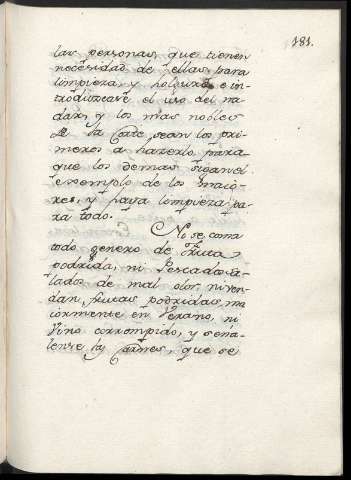 181.
las personas, que tienen
necesidad de ellas para
limpieza, y holgura, e in-
troduzcase el uso del na-
dar, y los mas nobles
de la Cate, sean los pri-
meros a hazerlo para
que los demas sigan el
exemplo de los maio-
res, y haya limpieza pa-
ra todo.
No se coma
todo genero de fruta
podrida, ni Pescados sa-
lados de mal olor, ni ven-
dan, frutas podridas, ma
iormente en Verano, ni
Vino corrompido, y señá-
lense las Carnes, que se